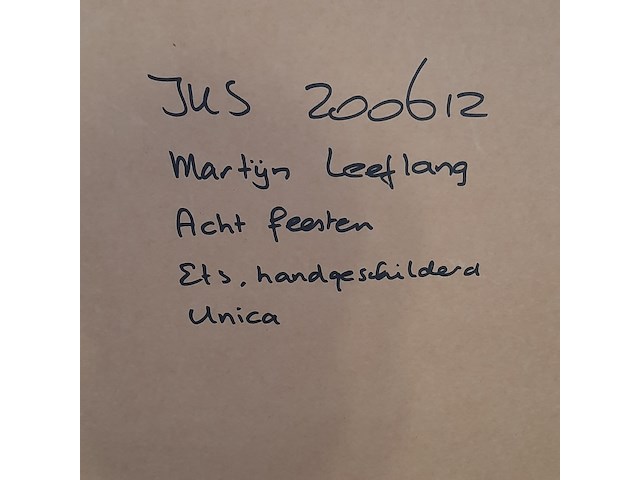 JKS 200612
Martijn Leeflang
Acht feesten
Ets, handgeschilderd
Unica